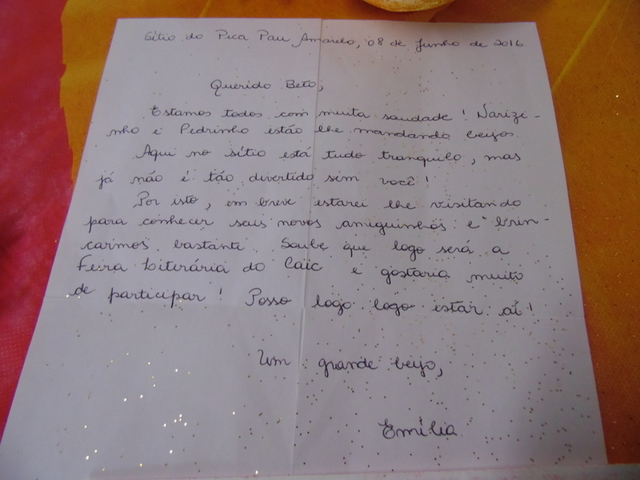 Sítio do Pica Pau Amarelo, 08 de Junho de 2016
Querido Beto,
Estamos todos com muita saudade! Narizi-
nho e Pedrinho estão lhe mandando beijos.
Aqui no sítio está tudo tranquilo, mas
já não é tão divertido sem você!
Por isto, em breve estarei lhe visitando
para conhecer seus novos amiguinhos e brin-
carmos bastante. Soube que logo será a
Feira Literária do Caic e gostaria muito
de participar! Posso logo logo estar aí!
Um grande beijo,
Emília